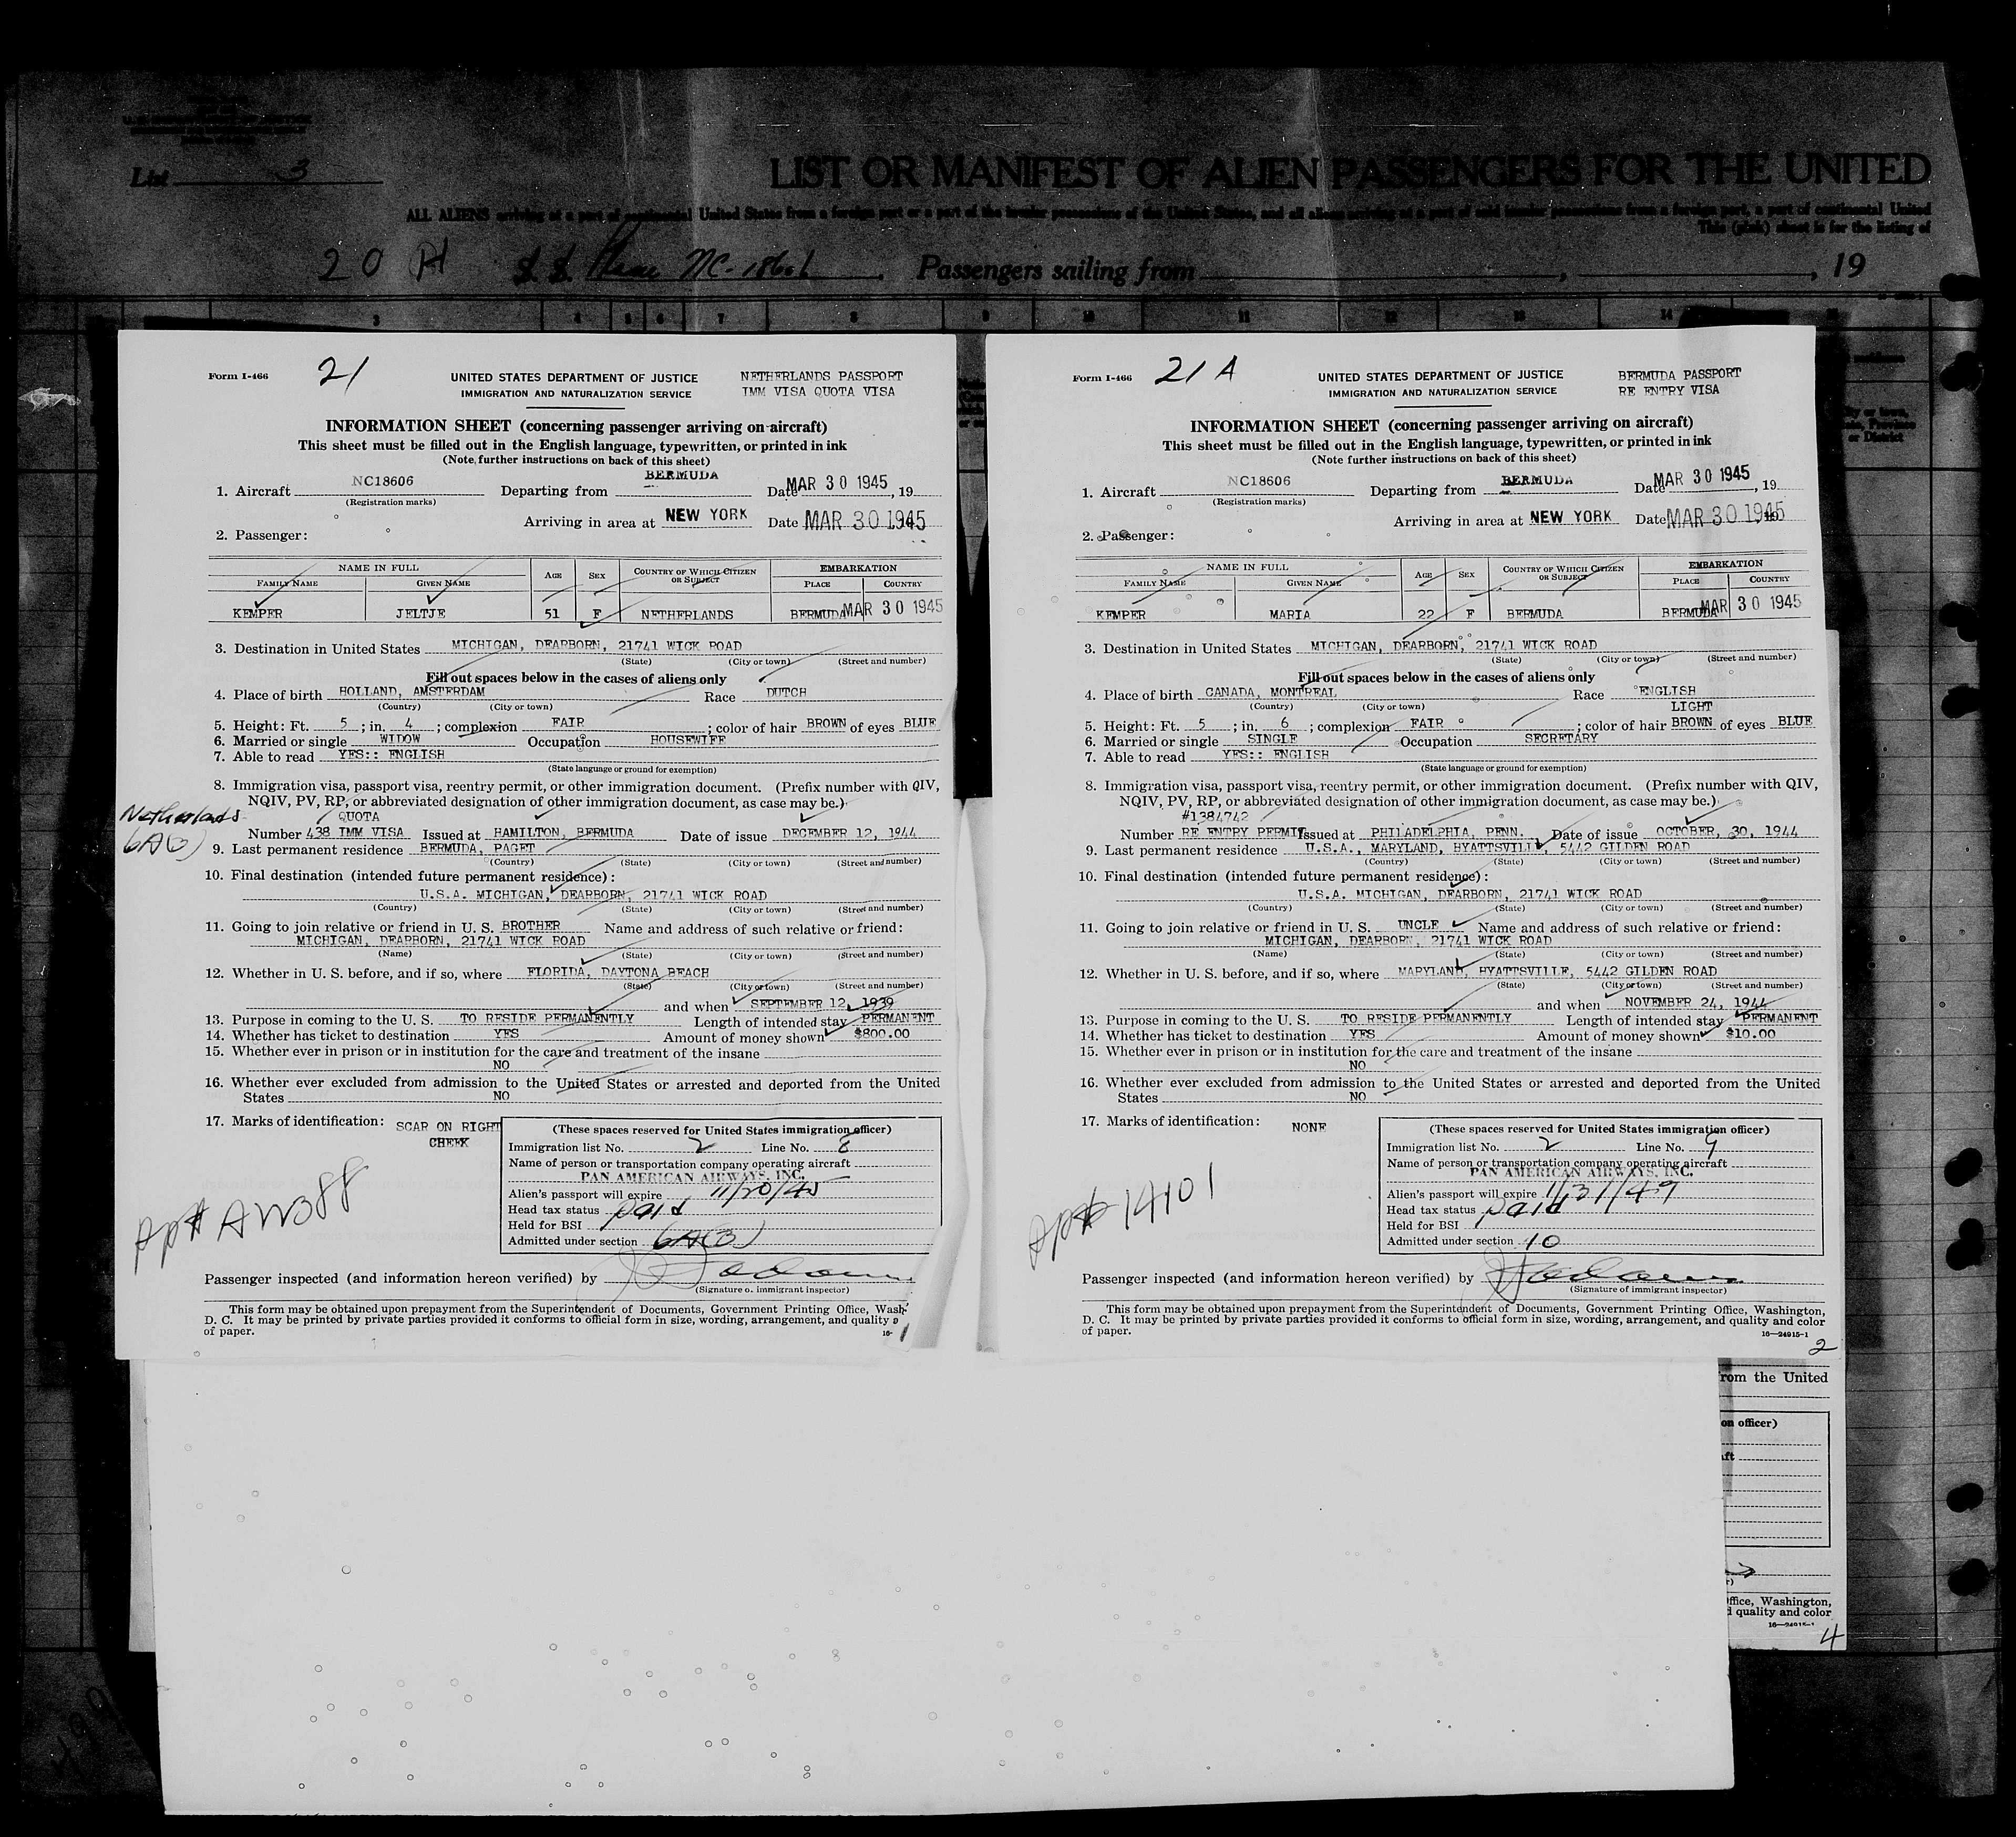 List 3
LIST OR MANIFEST OF ALIEN PASSENGERS FOR THE UNITED
ALL ALIENS arriving at a port of continental United States from a foreign port or a port of the insular possessions of the United States, and all aliens arriving at a port of said insular possessions from a foreign port, a port of continental United
This (pink) sheet is for the listing of
20 H S. S. Plane NC-18606 Passengers sailing from , , 19
3 4 5 6 7 8 9 10 11 12 13 14
Form I-466
21
UNITED STATES DEPARTMENT OF JUSTICE
IMMIGRATION AND NATURALIZATION SERVICE
NETHERLANDS PASSPORT
IMM VISA QUOTA VISA
INFORMATION SHEET (concerning passenger arriving on aircraft)
This sheet must be filled out in the English language, typewritten, or printed in ink
(Note further instructions on back of this sheet)
1. Aircraft NC18606 Departing from BERMUDA Date MAR 30 1945, 19
(Registration marks)
Arriving in area at NEW YORK Date MAR 30 1945
2. Passenger:
NAME IN FULL AGE SEX COUNTRY OF WHICH CITIZEN OR SUBJECT EMBARKATION
FAMILY NAME GIVEN NAME PLACE COUNTRY
KEMPER JELTJE 51 F NETHERLANDS BERMUDA MAR 30 1945
3. Destination in United States MICHIGAN, DEARBORN, 21741 WICK ROAD
(State) (City or town) (Street and number)
Fill out spaces below in the cases of aliens only
4. Place of birth HOLLAND, AMSTERDAM Race DUTCH
(Country) (City or town)
5. Height: Ft. 5 ; in. 4 ; complexion FAIR ; color of hair BROWN of eyes BLUE
6. Married or single WIDOW Occupation HOUSEWIFE
7. Able to read YES:: ENGLISH
(State language or ground for exemption)
8. Immigration visa, passport visa, reentry permit, or other immigration document. (Prefix number with QIV,
NQIV, PV, RP, or abbreviated designation of other immigration document, as case may be.)
Netherlands
6A(3)
QUOTA
Number 438 IMM VISA Issued at HAMILTON, BERMUDA Date of issue DECEMBER 12, 1944
9. Last permanent residence BERMUDA, PAGET
(Country) (State) (City or town) (Street and number)
10. Final destination (intended future permanent residence):
U.S.A. MICHIGAN, DEARBORN, 21741 WICK ROAD
(Country) (State) (City or town) (Street and number)
11. Going to join relative or friend in U. S. BROTHER Name and address of such relative or friend:
MICHIGAN, DEARBORN, 21741 WICK ROAD
(Name) (State) (City or town) (Street and number)
12. Whether in U. S. before, and if so, where FLORIDA, DAYTONA BEACH
(State) (City or town) (Street and number)
and when SEPTEMBER 12, 1939
13. Purpose in coming to the U. S. TO RESIDE PERMANENTLY Length of intended stay PERMANENT
14. Whether has ticket to destination YES Amount of money shown $800.00
15. Whether ever in prison or in institution for the care and treatment of the insane
NO
16. Whether ever excluded from admission to the United States or arrested and deported from the United
States NO
17. Marks of identification: SCAR ON RIGHT
CHEEK
(These spaces reserved for United States immigration officer)
Immigration list No. 2 Line No. 8
Name of person or transportation company operating aircraft
PAN AMERICAN AIRWAYS, INC.
Alien's passport will expire 11/20/45
Head tax status Paid
Held for BSI
Admitted under section 6A(3)
Ap# AW388
Passenger inspected (and information hereon verified) by
(Signature of immigrant inspector)
This form may be obtained upon prepayment from the Superintendent of Documents, Government Printing Office, Wash
D. C. It may be printed by private parties provided it conforms to official form in size, wording, arrangement, and quality
of paper.
16-
1
Form I-466
21 A
UNITED STATES DEPARTMENT OF JUSTICE
IMMIGRATION AND NATURALIZATION SERVICE
BERMUDA PASSPORT
RE ENTRY VISA
INFORMATION SHEET (concerning passenger arriving on aircraft)
This sheet must be filled out in the English language, typewritten, or printed in ink
(Note further instructions on back of this sheet)
1. Aircraft NC18606 Departing from BERMUDA Date MAR 30 1945, 19
(Registration marks)
Arriving in area at NEW YORK Date MAR 30 1945
2. Passenger:
NAME IN FULL AGE SEX COUNTRY OF WHICH CITIZEN OR SUBJECT EMBARKATION
FAMILY NAME GIVEN NAME PLACE COUNTRY
KEMPER MARIA 22 F BERMUDA BERMUDA MAR 30 1945
3. Destination in United States MICHIGAN, DEARBORN, 21741 WICK ROAD
(State) (City or town) (Street and number)
Fill out spaces below in the cases of aliens only
4. Place of birth CANADA, MONTREAL Race ENGLISH
(Country) (City or town)
LIGHT
5. Height: Ft. 5 ; in. 6 ; complexion FAIR ; color of hair BROWN of eyes BLUE
6. Married or single SINGLE Occupation SECRETARY
7. Able to read YES:: ENGLISH
(State language or ground for exemption)
8. Immigration visa, passport visa, reentry permit, or other immigration document. (Prefix number with QIV,
NQIV, PV, RP, or abbreviated designation of other immigration document, as case may be.)
#1384742
Number RE ENTRY PERMIT Issued at PHILADELPHIA, PENN. Date of issue OCTOBER, 30, 1944
9. Last permanent residence U.S.A., MARYLAND, HYATTSVILLE, 5442 GILDEN ROAD
(Country) (State) (City or town) (Street and number)
10. Final destination (intended future permanent residence):
U.S.A. MICHIGAN, DEARBORN, 21741 WICK ROAD
(Country) (State) (City or town) (Street and number)
11. Going to join relative or friend in U. S. UNCLE Name and address of such relative or friend:
MICHIGAN, DEARBORN, 21741 WICK ROAD
(Name) (State) (City or town) (Street and number)
12. Whether in U. S. before, and if so, where MARYLAND, HYATTSVILLE, 5442 GILDEN ROAD
(State) (City or town) (Street and number)
and when NOVEMBER 24, 1944
13. Purpose in coming to the U. S. TO RESIDE PERMANENTLY Length of intended stay PERMANENT
14. Whether has ticket to destination YES Amount of money shown $10.00
15. Whether ever in prison or in institution for the care and treatment of the insane
NO
16. Whether ever excluded from admission to the United States or arrested and deported from the United
States NO
17. Marks of identification: NONE
(These spaces reserved for United States immigration officer)
Immigration list No. 2 Line No. 9
Name of person or transportation company operating aircraft
PAN AMERICAN AIRWAYS, INC.
Alien's passport will expire 1/31/49
Head tax status Paid
Held for BSI
Admitted under section 10
Ap# 14101
Passenger inspected (and information hereon verified) by
(Signature of immigrant inspector)
This form may be obtained upon prepayment from the Superintendent of Documents, Government Printing Office, Washington,
D. C. It may be printed by private parties provided it conforms to official form in size, wording, arrangement, and quality and color
of paper.
16—24915-1
2
rom the United
on officer)
ft
ffice, Washington,
d quality and color
16—24915-1
4